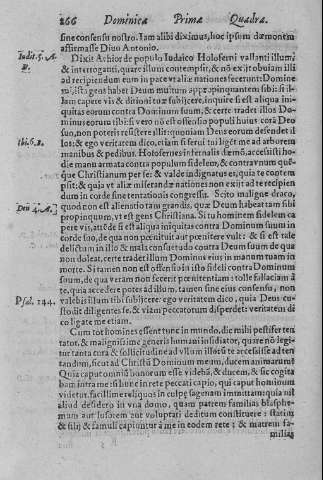 266 Dominica Prima Quadra.
sine consensu nostro. Iam alibi diximus, hoc ipsum dæmonem
affirmasse Diuo Antonio.
Iudit. 5. A. Dixit Achior de populo Iudaico Holoferni vallanti illum;
B. & interroganti, quare illum contempsit, & nō exijt obuiam illi
ad recipiendum eum in pace vt aliæ nationes fecerunt: Domine
mi, ista gens habet Deum multum appropinquantem sibi: si il-
lam capere vis & ditioni tuæ subijcere, inquire si est aliqua ini-
quitas eorum contra Dominum suum, & certe tradet illos Do-
minus eorum tibi: si vero nō est offensio populi huius corā Deo
suo, non poteris resistere illi: quoniam Deus eorum defendet il-
Ibi. 6. B. los: & ego veritatem dico, etiam si ferui tui ligēt me ad arborem
manibus & pedibus. Holofernes infernalis dæmō, accessisti ho-
die manu armata contra populum fidelem, & contra vnum quē-
que Christianum per se: & valde indignatus es, quia te contem-
psit: & quia vt aliæ miserandæ nationes non exijt ad te recipien-
dum in corde suo tentationis congressus. Scito maligne draco,
Deū 4. A. quod non est alia natio tam grandis, quæ Deum habeat tam sibi
propinquum, vt est gens Christiana. Si tu hominem fidelem ca
pere vis, attēde si est aliqua iniquitas contra Dominum suum in
corde suo, de qua non pœnituit aut pœnitere vult: & si est tale
delictum in illo & mala consuetudo contra Deum suum de qua
non doleat, certe tradet illum Dominus eius in manum tuam in
morte. Si tamen non est offensio in isto fideli contra Dominum
suum, de qua veram non fecerit pœnitentiam: tolle fallaciam à
te, quia accedere potes ad illum, tamen sine eius consensu, non
Psal. 144. valebis illum tibi subijcere: ego veritatem dico, quia Deus cu-
stodit diligentes se, & viam peccatorum disperdet: veritatem di
co ligate me etiam.
Cum tot homines essent tunc in mundo, die mihi pestifer ten
tator, & malignissime generis humani insidiator, quare nō legi-
tur tanta cura & sollicitudine ad vllum illorū te accessisse ad ten
tandum, sicut ad Christū Dominum meum, ducem animarum?
Quia caput omniū bonorum esse videbā, & ducem, & sic cogita
bam intra me: si hunc in rete peccati capio, qui caput hominum
videtur, facillime reliquos in culpę sagenam immittam: quia nil
aliud desidero in vna domo, quam patrem familias blasphe-
mum aut lusorem aut voluptati deditum constituere: statim
& filij & famuli capiuntur à me in eodem rete; & matrem fa-
milias